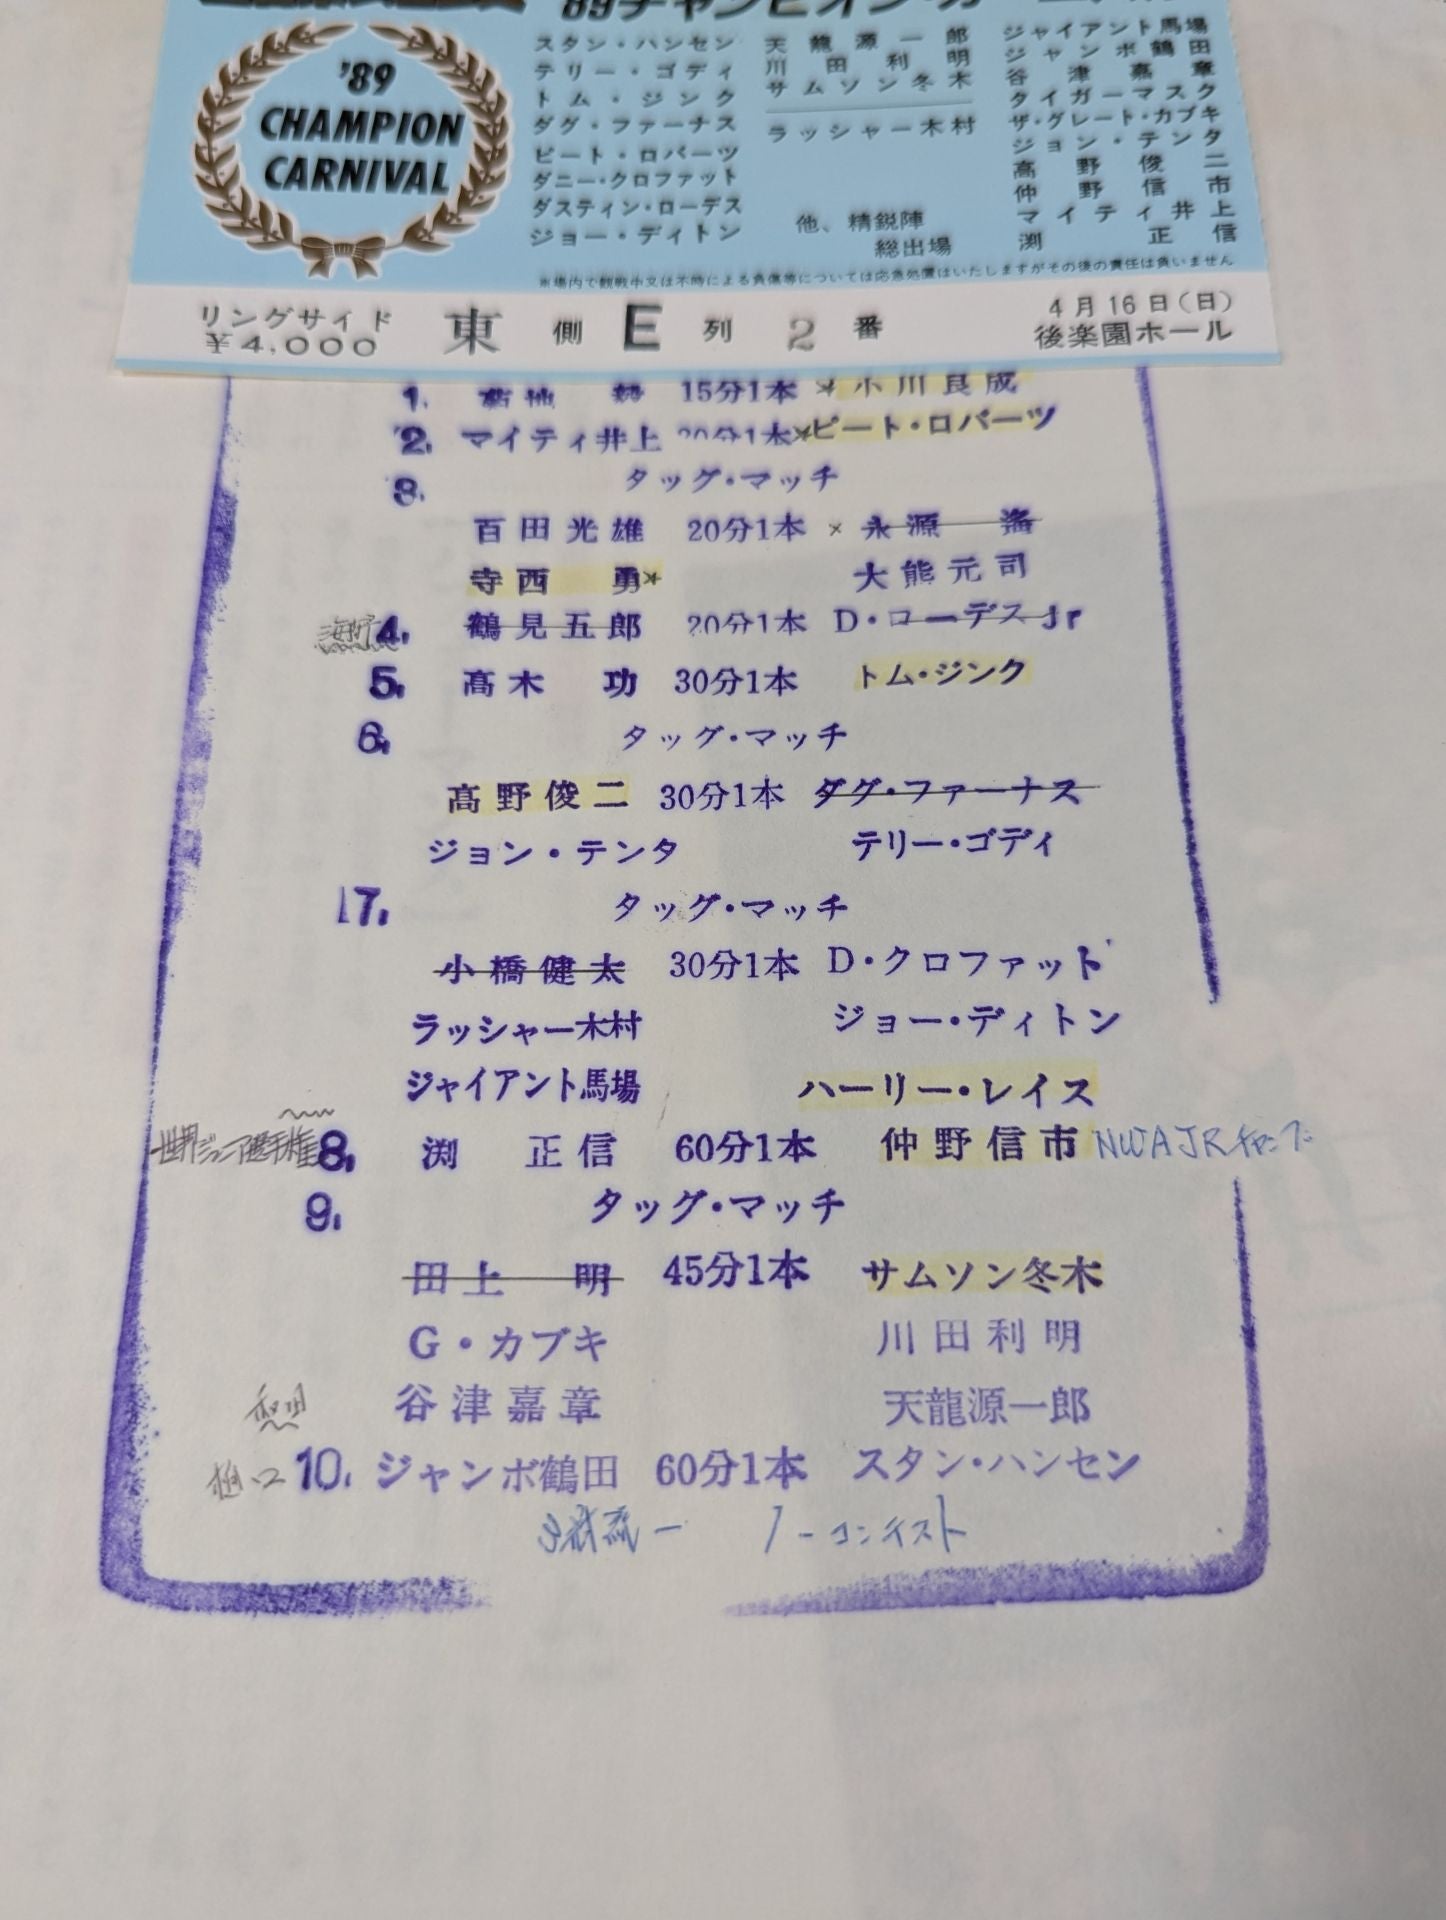 '89チャンピオン・カー
'89
CHAMPION
CARNIVAL
スタン・ハンセン
テリー・ゴディ
トム・ジンク
ダグ・ファーナス
ピート・ロバーツ
ダニー・クロファット
ダスティン・ローデス
ジョー・ディトン
天龍源一郎
川田利明
サムソン冬木
ラッシャー木村
他、精鋭陣
総出場
ジャイアント馬場
ジャンボ鶴田
谷津嘉章
タイガーマスク
ザ・グレート・カブキ
ジョン・テンタ
高野俊二
仲野信市
マイティ井上
渕正信
※場内で観戦中又は不時による負傷等については応急処置はいたしますがその後の責任は負いません
リングサイド
¥4,000
東側E列2番
4月16日(日)
後楽園ホール
1. 菊地毅 15分1本 × 小川良成
2. マイティ井上 20分1本 × ピート・ロバーツ
3. タッグ・マッチ
百田光雄 20分1本 × 永源遙
寺西勇 × 大熊元司
4. 鶴見五郎 20分1本 D・ローデスJr
5. 高木功 30分1本 トム・ジンク
6. タッグ・マッチ
高野俊二 30分1本 ダグ・ファーナス
ジョン・テンタ テリー・ゴディ
7. タッグ・マッチ
小橋健太 30分1本 D・クロファット
ラッシャー木村 ジョー・ディトン
ジャイアント馬場 ハーリー・レイス
世界ジュニア選手権 8. 渕正信 60分1本 仲野信市 NWA JR
9. タッグ・マッチ
田上明 45分1本 サムソン冬木
G・カブキ 川田利明
谷津嘉章 天龍源一郎
和田
樋口 10. ジャンボ鶴田 60分1本 スタン・ハンセン
ノーコンテスト